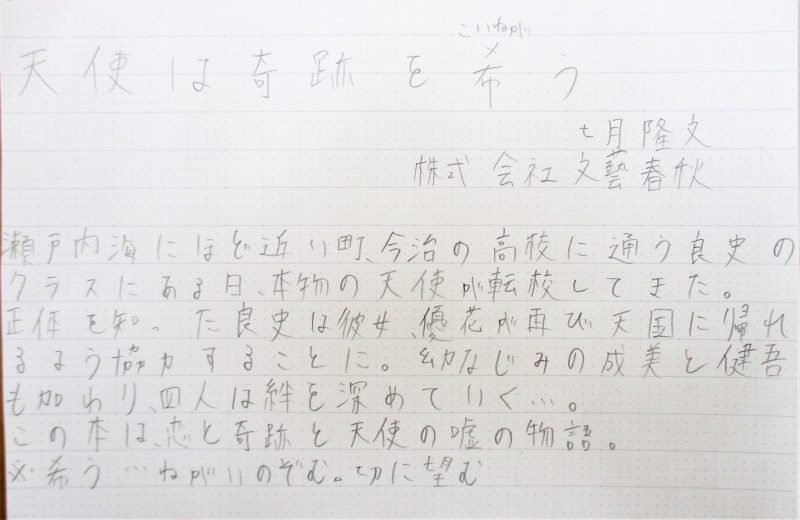 こいねが
天使は奇跡を希う
七月隆文
株式会社文藝春秋
瀬戸内海にほど近い町、今治の高校に通う良史の
クラスにある日、本物の天使が転校してきた。
正体を知った良史は彼女、優花が再び天国に帰れ
るよう協力することに。幼なじみの成美と健吾
も加わり、四人は絆を深めていく…。
この本は、恋と奇跡と天使の嘘の物語。
※希う…ねがいのぞむ。切に望む